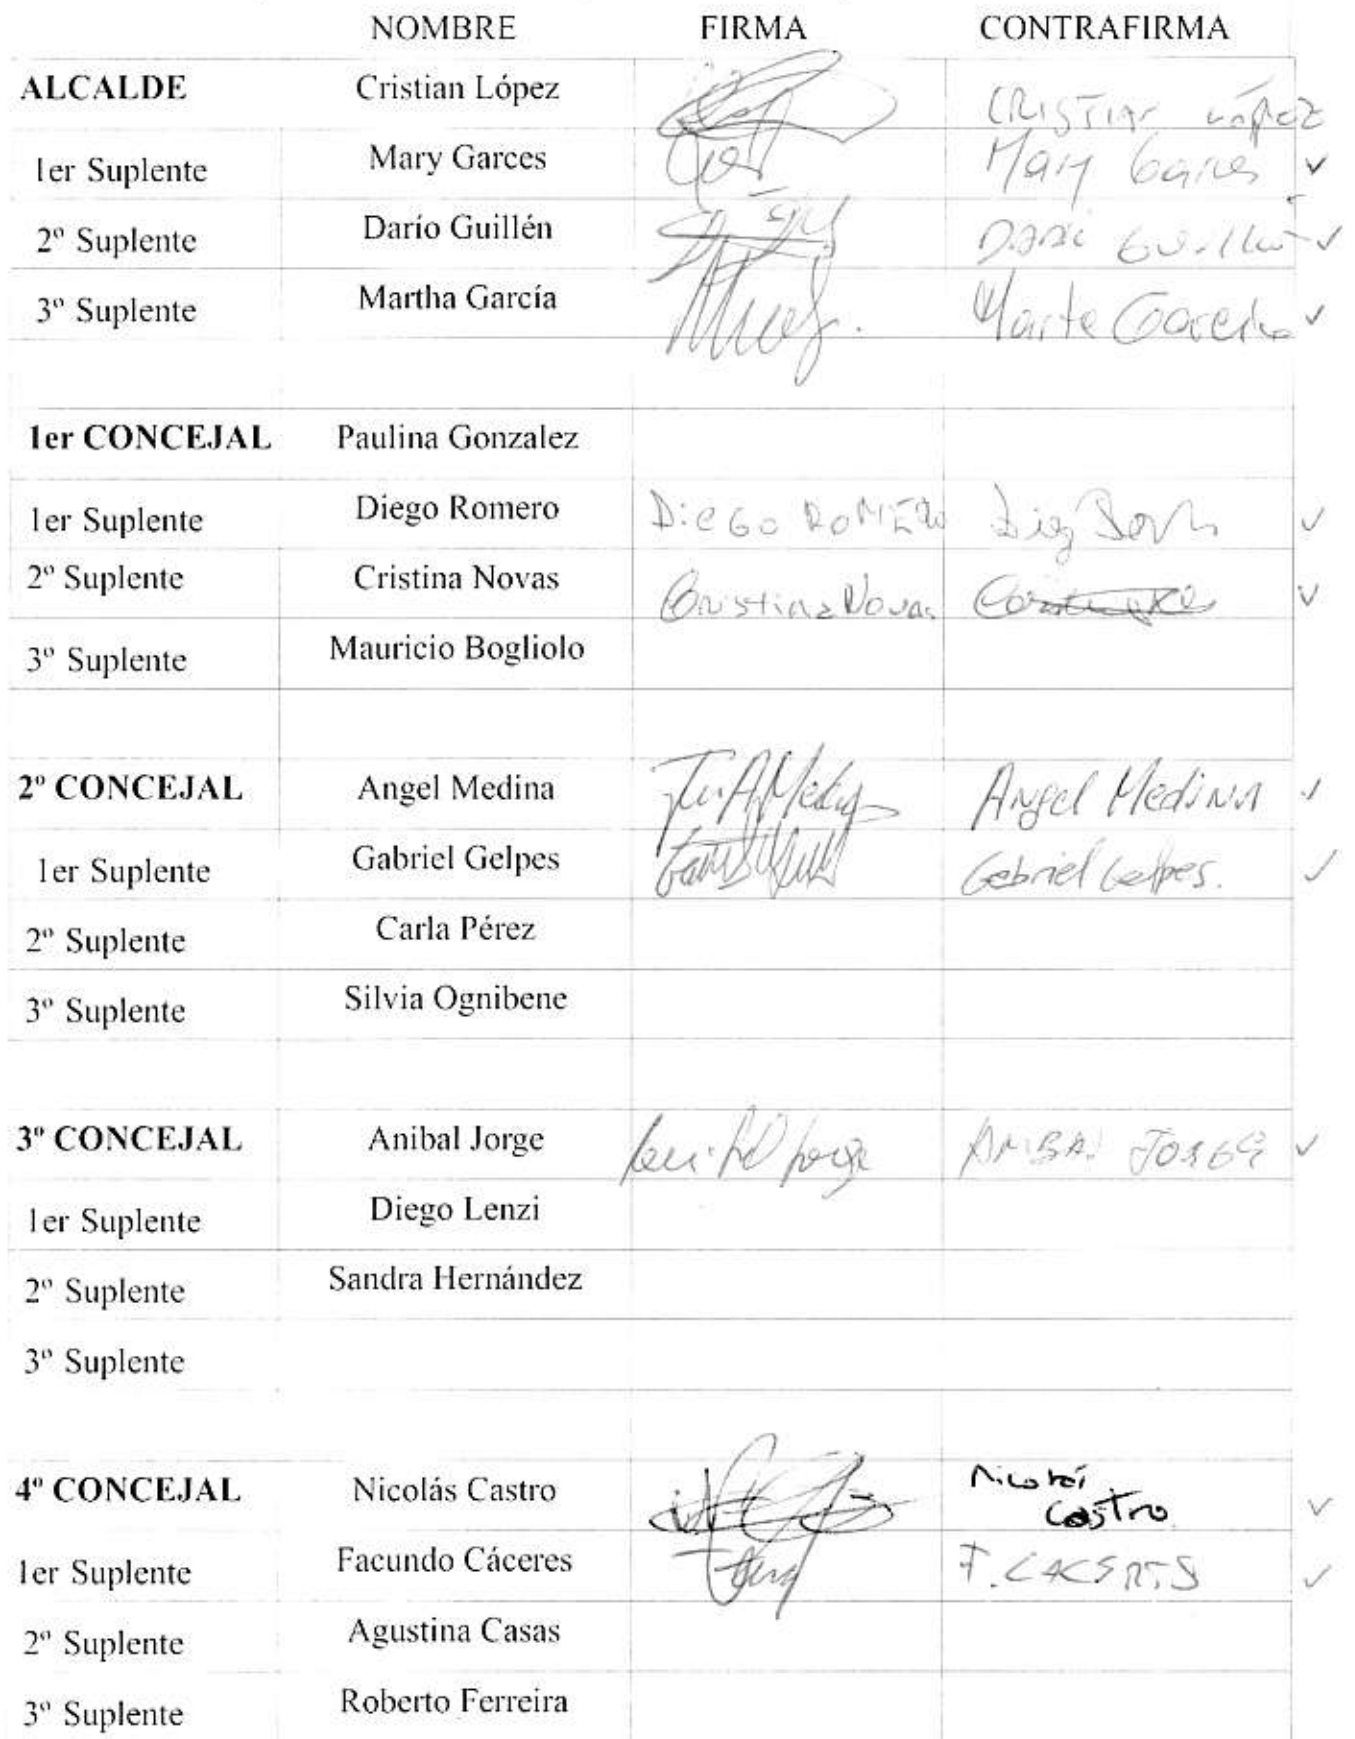 NOMBRE FIRMA CONTRAFIRMA
ALCALDE Cristian López CRISTIAN LÓPEZ
1er Suplente Mary Garces Mary Garces ✓
2º Suplente Darío Guillén Darío Guillén ✓
3º Suplente Martha García Marta García ✓
1er CONCEJAL Paulina Gonzalez
1er Suplente Diego Romero DIEGO ROMERO ✓
2º Suplente Cristina Novas Cristina Novas ✓
3º Suplente Mauricio Bogliolo
2º CONCEJAL Angel Medina Angel Medina ✓
1er Suplente Gabriel Gelpes Gabriel Gelpes. ✓
2º Suplente Carla Pérez
3º Suplente Silvia Ognibene
3º CONCEJAL Anibal Jorge Anibal Jorge ANIBAL JORGE ✓
1er Suplente Diego Lenzi
2º Suplente Sandra Hernández
3º Suplente
4º CONCEJAL Nicolás Castro Nicolás Castro ✓
1er Suplente Facundo Cáceres F. CACERES ✓
2º Suplente Agustina Casas
3º Suplente Roberto Ferreira